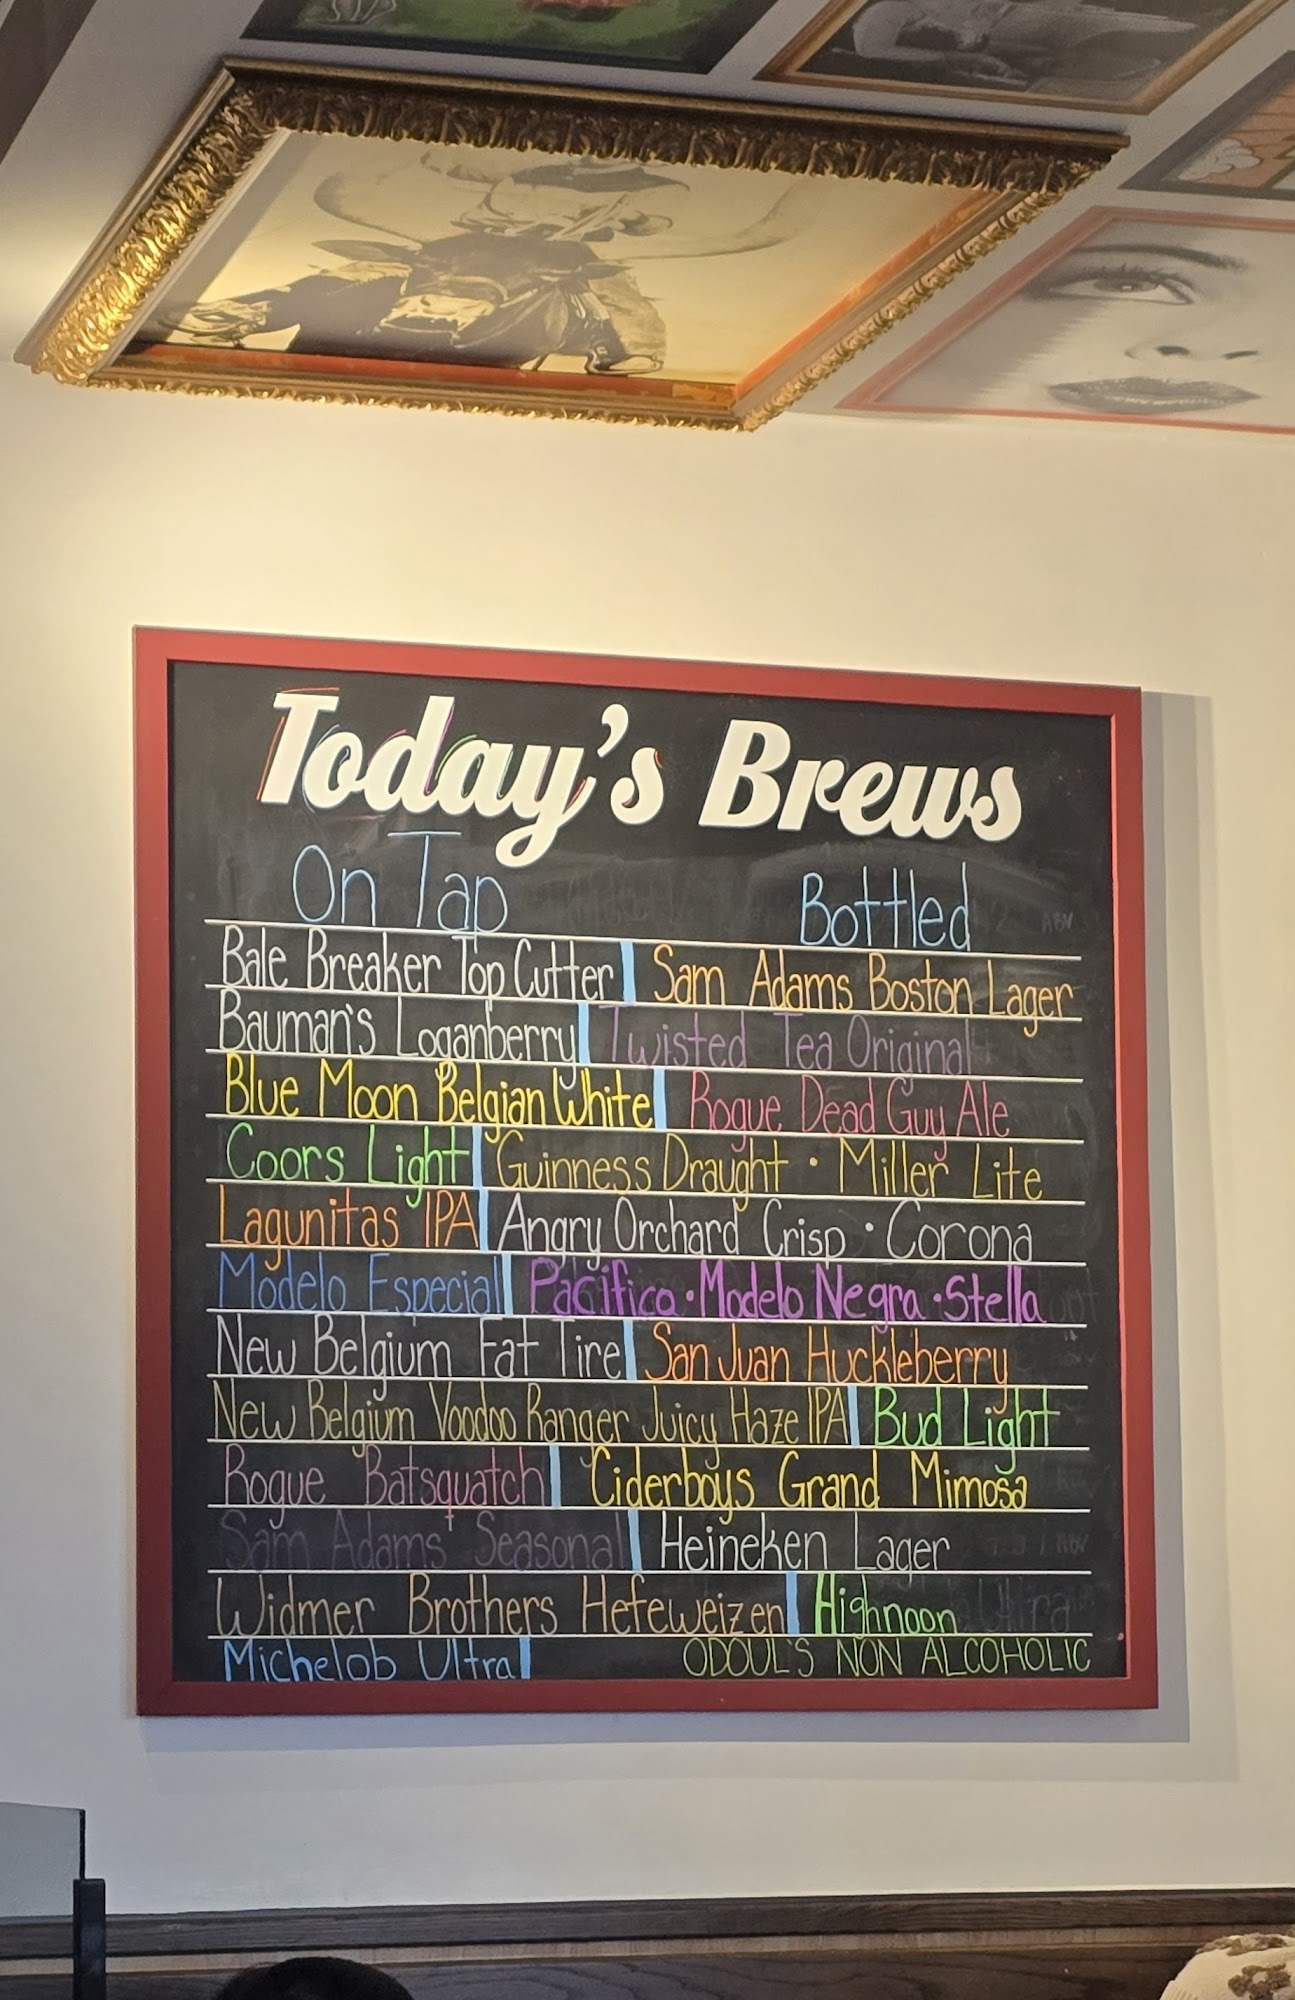 Today's Brews
On Tap Bottled
Bale Breaker Top Cutter | Sam Adams Boston Lager
Bauman's Loganberry | Twisted Tea Original
Blue Moon Belgian White | Rogue Dead Guy Ale
Coors Light | Guinness Draught • Miller Lite
Lagunitas IPA | Angry Orchard Crisp • Corona
Modelo Especial | Pacifico • Modelo Negra • Stella
New Belgium Fat Tire | San Juan Huckleberry
New Belgium Voodoo Ranger Juicy Haze IPA | Bud Light
Rogue Batsquatch | Ciderboys Grand Mimosa
Sam Adams' Seasonal | Heineken Lager
Widmer Brothers Hefeweizen | Highnoon
Michelob Ultra | ODOUL'S NON ALCOHOLIC